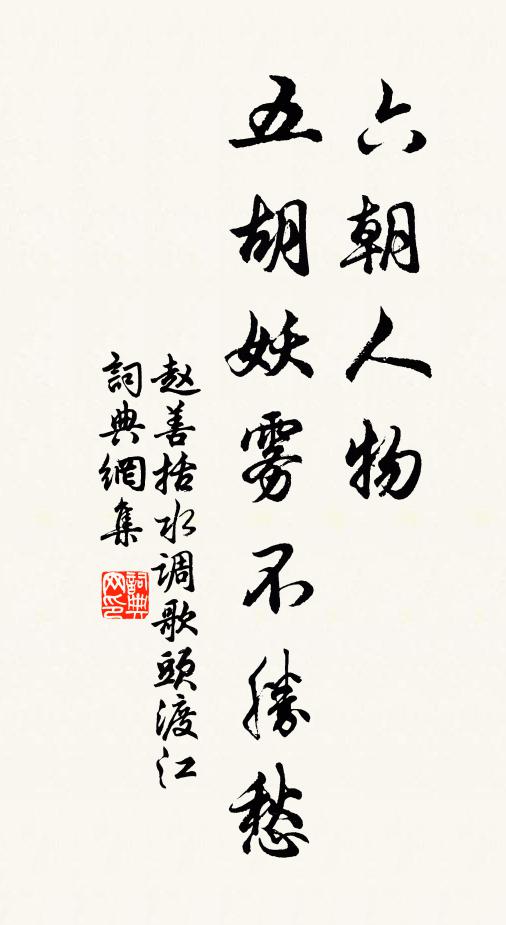 六朝人物
五胡妖雾不勝愁
赵善括水调歌頭渡江
詞典網集
詞典网印